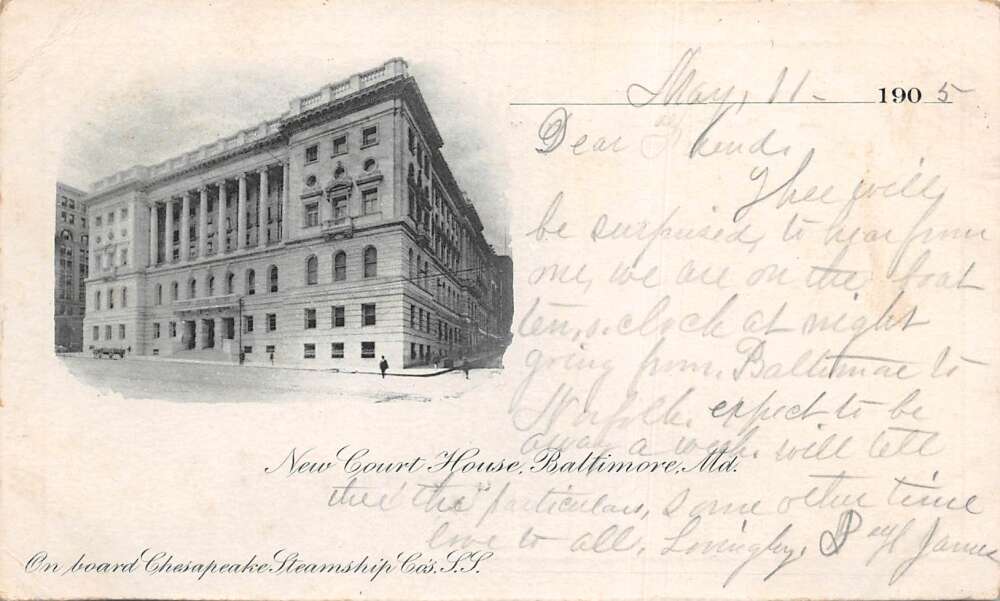 May, 11- 1905
Dear Friends,
Thee will
be surprised, to hear from
me, we are on the boat
ten, o,clock at night
going from, Baltimore to
Norfolk. expect to be
away a week. will tell
New Court House, Baltimore, Md.
thee the particulars, some other time
love to all, Lovingly, James
On board Chesapeake Steamship Co's. S.S.